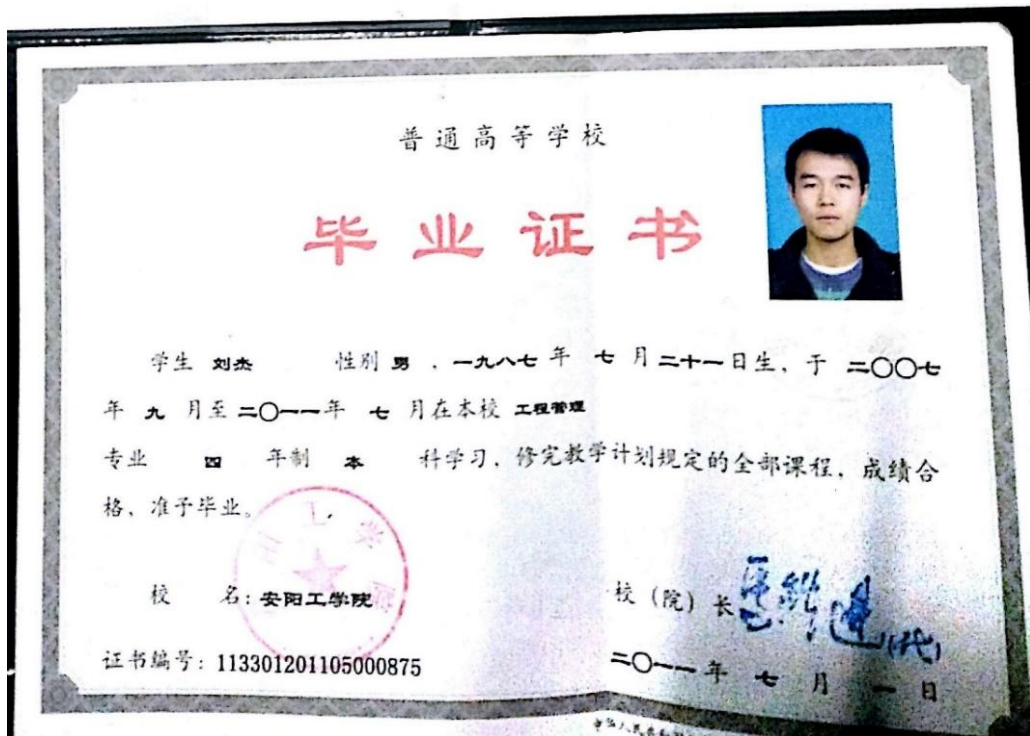 普通高等学校
毕业证书
学生 刘杰 性别 男 , 一九八七 年 七 月 二十一 日生, 于 二〇〇七
年 九 月至 二〇一一 年 七 月在本校 工程管理
专业 四 年制 本 科学习, 修完教学计划规定的全部课程, 成绩合
格, 准予毕业。
校 名: 安阳工学院
校 (院) 长
证书编号: 113301201105000875
二〇一一 年 七 月 一 日